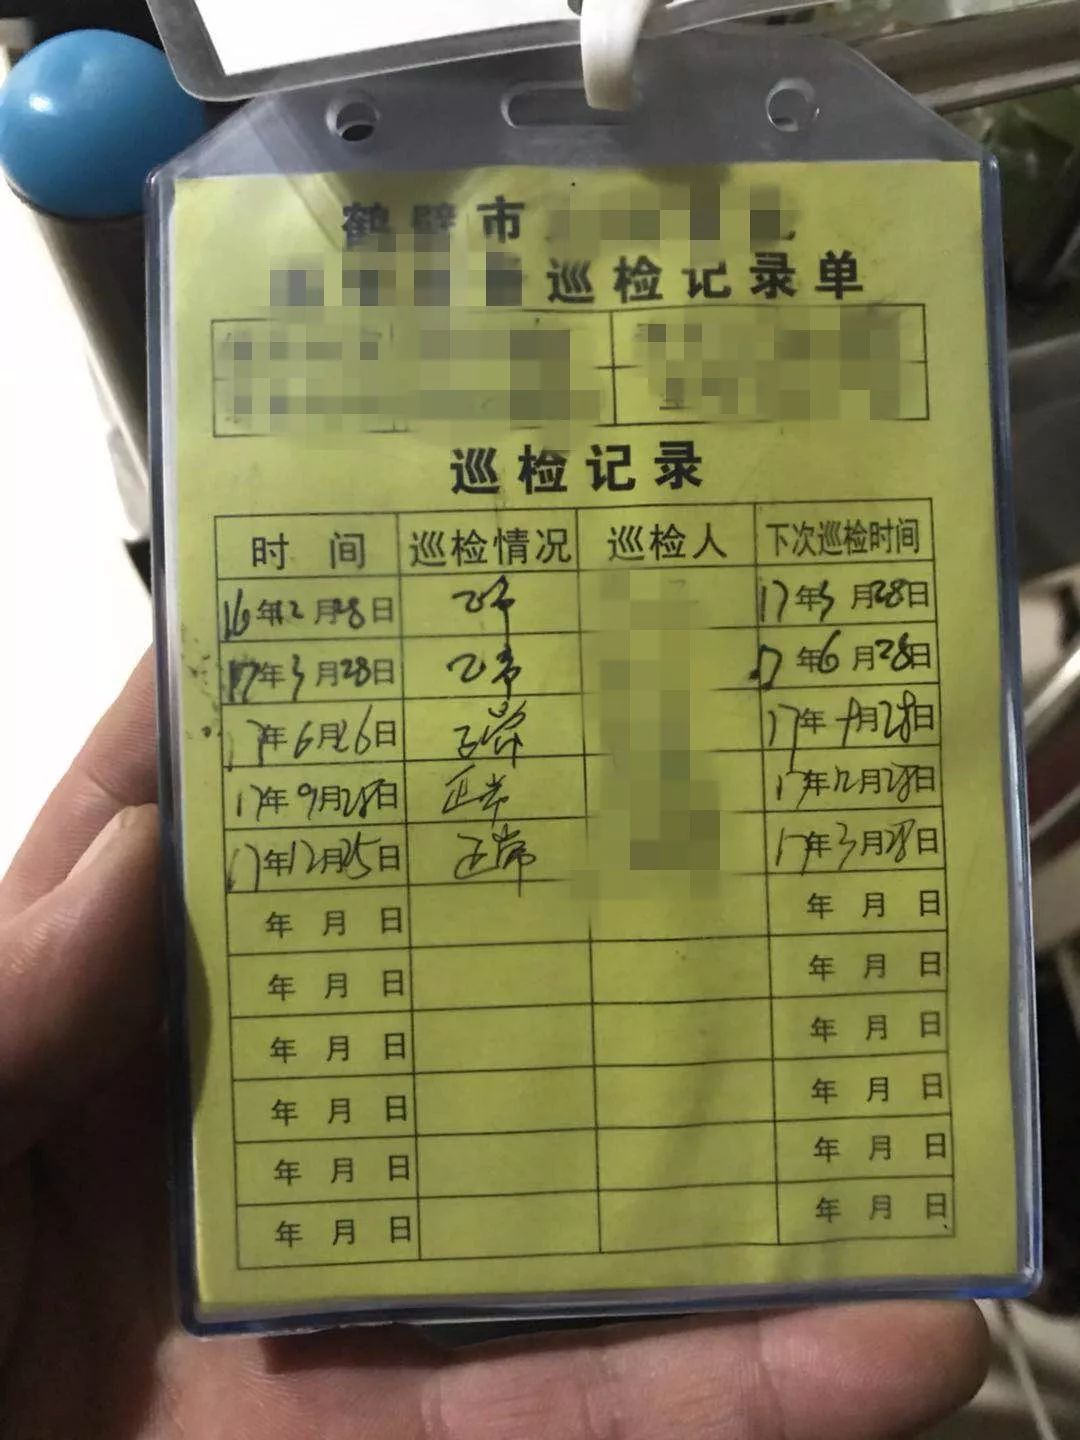 鹤壁市
巡检记录单
巡检记录
时 间 巡检情况 巡检人 下次巡检时间
16年12月28日 正常 17年3月28日
17年3月28日 正常 17年6月28日
17年6月26日 正常 17年9月28日
17年9月28日 正常 17年12月28日
17年12月25日 正常 17年3月28日
年 月 日 年 月 日
年 月 日 年 月 日
年 月 日 年 月 日
年 月 日 年 月 日
年 月 日 年 月 日
年 月 日 年 月 日